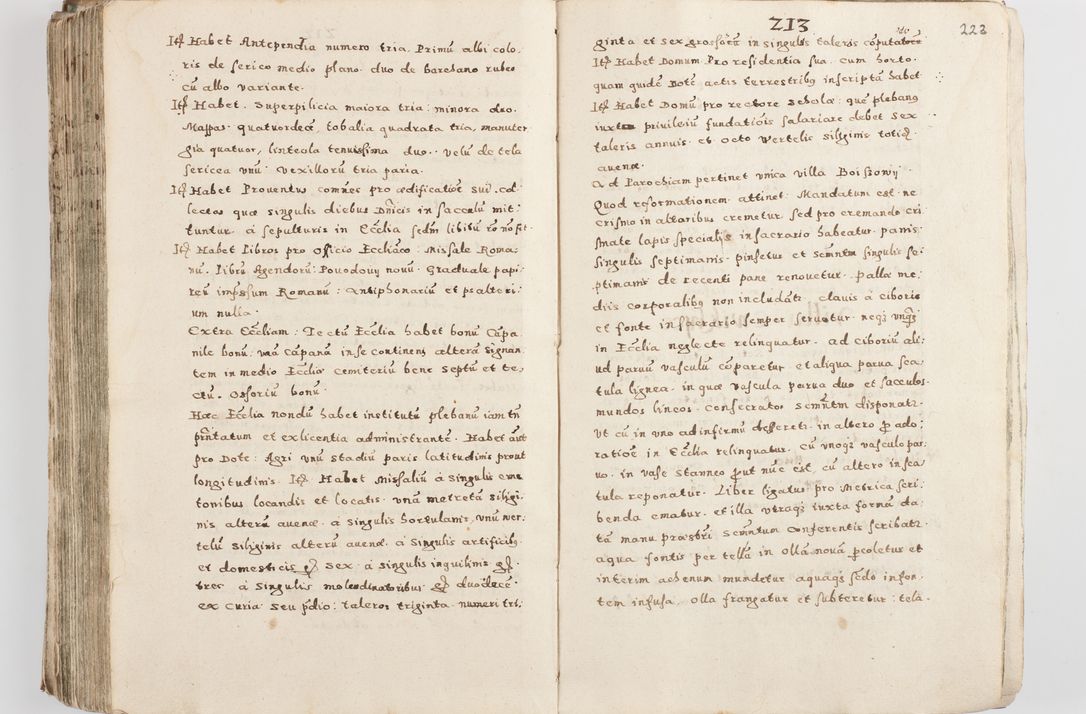 Itē Habet Antependia numero tria. Primū albi colo-
ris de serico medio plano. duo de barchano rubeo
cū albo variante.
Itē Habet. Superpilicia maiora tria: minora duo.
Mappas quatuordecē, tobalia quadrata tria, manuter-
gia quatuor, linteola tenuissima duo. velū de tela
sericea unū. Vexillorū tria paria.
Itē Habet Proventus comēs pro ædificatioē sui col-
lectos quæ singulis diebus Dn̄icis in saccalū mit:
tuntur. à sepulturis in Ecclia sedm libitū
Itē Habet Libros pro Officio Eccliaco: Missale Roma-
nū. librū Agendorū Povodovy novū. Graduale papi-
reū impssum Romanū: Antiphonariū et psalteri-
um nulla.
Extra Eccliam: Tectū Ecclia habet bonū Cāpa-
nile bonū. unā cāpanā in se continens alterā signan-
tem in medio Eccliæ cemiteriū bene septū et te-
ctū. Ossoriū bonū
Hæc Ecclia nondū habet institutū plebanū iam tn̄
prn̄tatum et ex licentia administrantē. Habet aūt
pro Dote: Agri unū stadiū paris latitudinis prout
longitudinis. Itē Habet Missaliū à singulis cme-
tonibus locandis et locatis. unā metretā siligi-
nis, alterā avenæ. à singulis hortulanis, unū wer-
telū siliginis alterū avenæ. à singulis artificibq
et domesticis gr̄ sex. à singulis inquilinis gr̄.
tres à singulis molendinatoribus gr̄ duodecē.
ex curia seu pdio: taleros triginta. numeri tri:
213
223
ginta et sex grossorū in singulis taleris cōputatoes
Itē Habet Domum Pro residentia sua cum horto.
quam quidē Dotē actis terrestribq inscriptā habet
Itē Habet Domū pro rectore scholæ: quē plebanq
iuxta privileiū fundatiōis salariare debet sex
taleris annuis et octo wertelis siliginis totiq
avenæ.
Ad Parochiam pertinet unica villa Boiszowij
Quod reformationem attinet. Mandatum est ne
crismo in altaribus cremetur sed pro cremando cri
smate lapis specialis in sacrario habeatur. panis
singulis septimanis. pinsetur et semntm singulis se:
ptimanis de recenti pane renovetur. Palla me:
diis corporalibq non includātr. clavis à ciborio
et fonte in sacrario semper servetur. neq unq̄
in Ecclia neglecte relinquatur. ad ciboriū ali:
ud parvū vasculū cōparetur. et aliqua parva sca
tula lignea. in qua vascula parva duo et sacculos
mundos lineos. consecratos semntm disponatr.
Ut cū in uno ad infirmū defferetr in altero p ado;
ratioē in Ecclia relinquatur. Cū unoq vasculo par:
vo. in vase stanneo put nūc est, cū altero in sca
tula reponatur. Liber ligatus pro Metrica scri:
benda ematur. et illa utraq iuxta formā da
tā manu præsbri semntum conferentis scribatr.
aqua fontis per telā in ollā novā pcoletur et
interim aehenum mundetur aquaq sedo in fon-
tem infusa. olla frangatur et subteretur: tela.